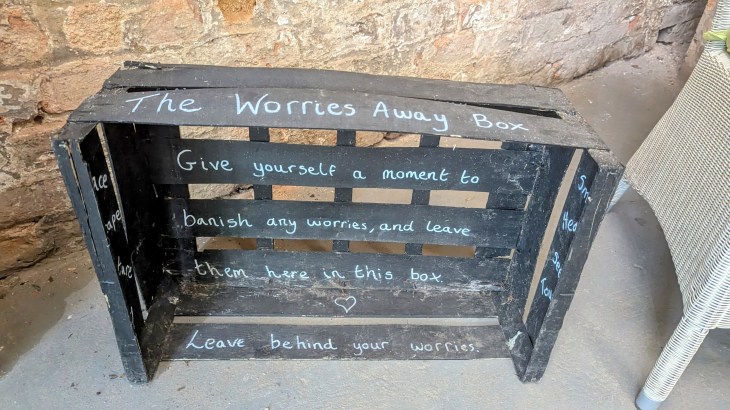 The Worries Away Box
Give yourself a moment to
banish any worries, and leave
them here in this box
♡
Leave behind your worries.